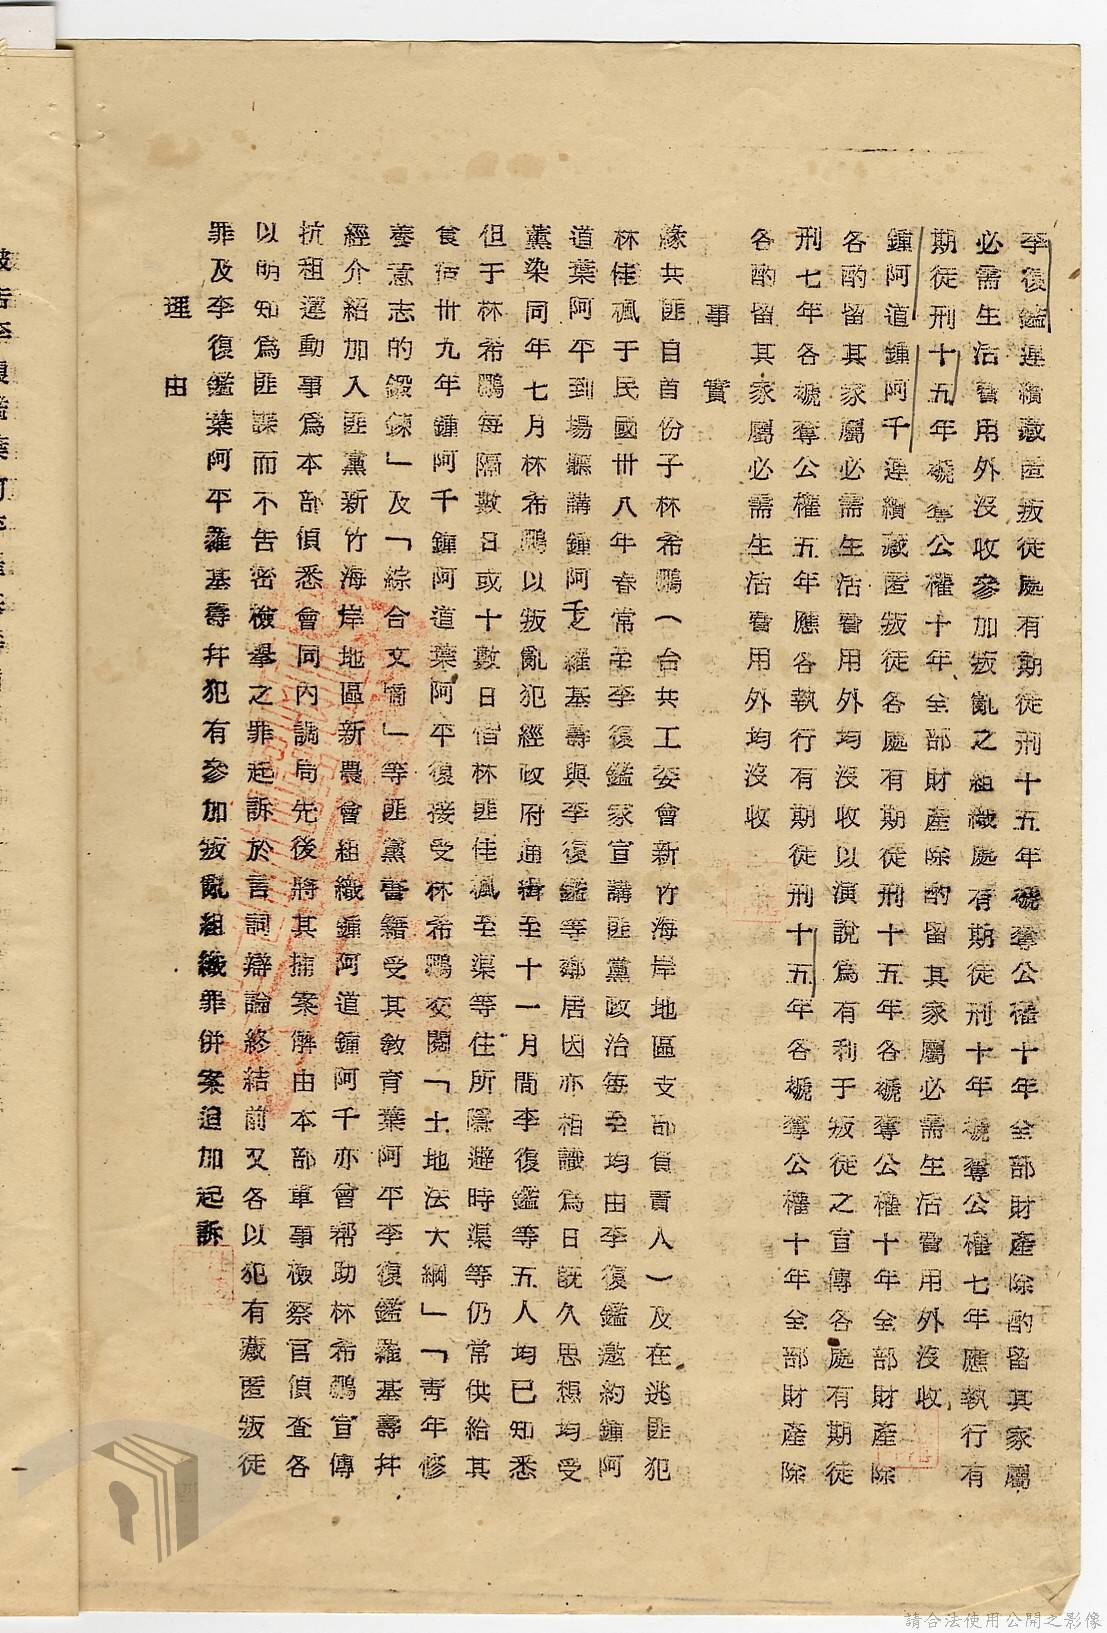 李復鑑連續藏匿叛徒處有期徒刑十五年褫奪公權十年全部財產除酌留其家屬
必需生活費用外沒收參加叛亂之組織處有期徒刑十年褫奪公權七年應執行有
期徒刑十五年褫奪公權十年全部財產除酌留其家屬必需生活費用外沒收
鍾阿道鍾阿千連續藏匿叛徒各處有期徒刑十五年各褫奪公權十年全部財產除
各酌留其家屬必需生活費用外均沒收以演說為有利于叛徒之宣傳各處有期徒
刑七年各褫奪公權五年應各執行有期徒刑十五年各褫奪公權十年全部財產除
各酌留其家屬必需生活費用外均沒收
事實
緣共匪自首份子林希鵬（台共工委會新竹海岸地區支部負責人）及在逃匪犯
林佳楓于民國卅八年春常至李復鑑家宣講匪黨政治每至均由李復鑑邀約鍾阿
道葉阿平到場聽講鍾阿千羅基壽與李復鑑等鄰居因亦相識為日既久思想均受
薰染同年七月林希鵬以叛亂犯經政府通緝至十一月間李復鑑等五人均已知悉
但于林希鵬每隔數日或十數日偕林匪佳楓至渠等住所隱避時渠等仍常供給其
食宿卅九年鍾阿千鍾阿道葉阿平復接受林希鵬交閱「土地法大綱」「青年修
養意志的鍛鍊」及「綜合文獻」等匪黨書籍受其教育葉阿平李復鑑羅基壽并
經介紹加入匪黨新竹海岸地區新農會組織鍾阿道鍾阿千亦曾幫助林希鵬宣傳
抗租運動事為本部偵悉會同內調局先後將其捕案解由本部軍事檢察官偵查各
以明知為匪諜而不告密檢舉之罪起訴於言詞辯論終結前又各以犯有藏匿叛徒
罪及李復鑑葉阿平羅基壽并犯有參加叛亂組織罪併案追加起訴
理由
請合法使用公開之影像